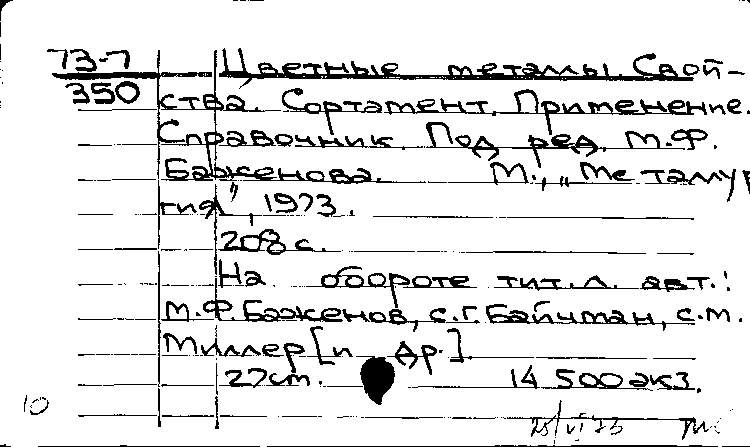 73-7 Цветные металлы. Свой-
350 ства. Сортамент. Применение.
Справочник. Под ред. М.Ф.
Баженова. М., „Металлур
гия", 1973.
208 с.
На обороте тит. л. авт.:
М.Ф. Баженов, С.Г. Байчман, С.М.
Миллер [и др.].
27 см. 14 500 экз.
10
25/VI 73